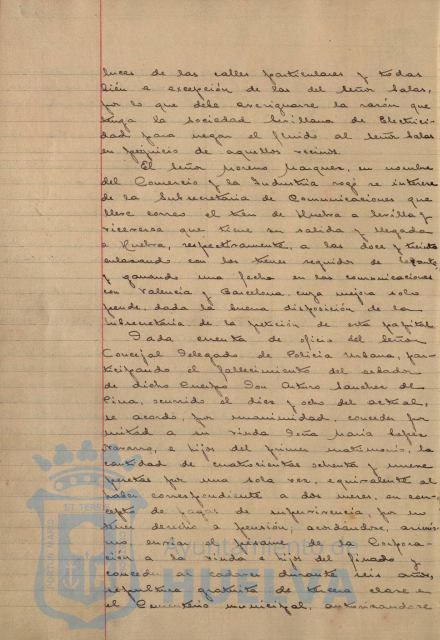 luces de las calles particulares y todas
bién a excepción de las del Señor Salas,
por lo que debe averiguarse la razón que
tenga la Sociedad Sevillana de Electrici-
dad para negar el fluido al Señor Salas
en perjuicio de aquellos vecinos.
El Señor Moreno Marquez, en nombre
del Comercio y la Industria rogó se interese
de la Subsecretaria de Comunicaciones que
lleve correo el tren de Huelva a Sevilla y
viceversa que tiene su salida y llegada
a Huelva, respectivamente, a las doce y treinta
enlazando con los trenes seguidos de
y ganando una fecha en las comunicaciones
con Valencia y Barcelona, cuya mejora solo
pende, dada la buena disposición de la
Subsecretaria, de la petición de esta capital.
Dada cuenta de oficio del Señor
Concejal Delegado de Policia Urbana, par-
ticipando el fallecimiento del celador
de dicho Cuerpo Don Arturo Sanchez de
Cina, ocurrido el dies y ocho del actual,
se acordó, por unanimidad, conceder por
mitad a su viuda Doña Maria Lopez
Navarro, e hijos del primer matrimonio, la
cantidad de cuatrocientas ochenta y nueve
pesetas por una sola vez, equivalente al
haber correspondiente a dos meses, en con-
cepto de pagas de supervivencia, por no
tener derecho a pensión, acordándose, asimis-
mo, enviar el pésame de la Corpora-
ción a la viuda e hijos del finado y
conceder al cadaver durante seis años,
sepultura gratuita de tercera clase en
el Cementerio municipal, autorizándose
Ayuntamiento de
HUELVA